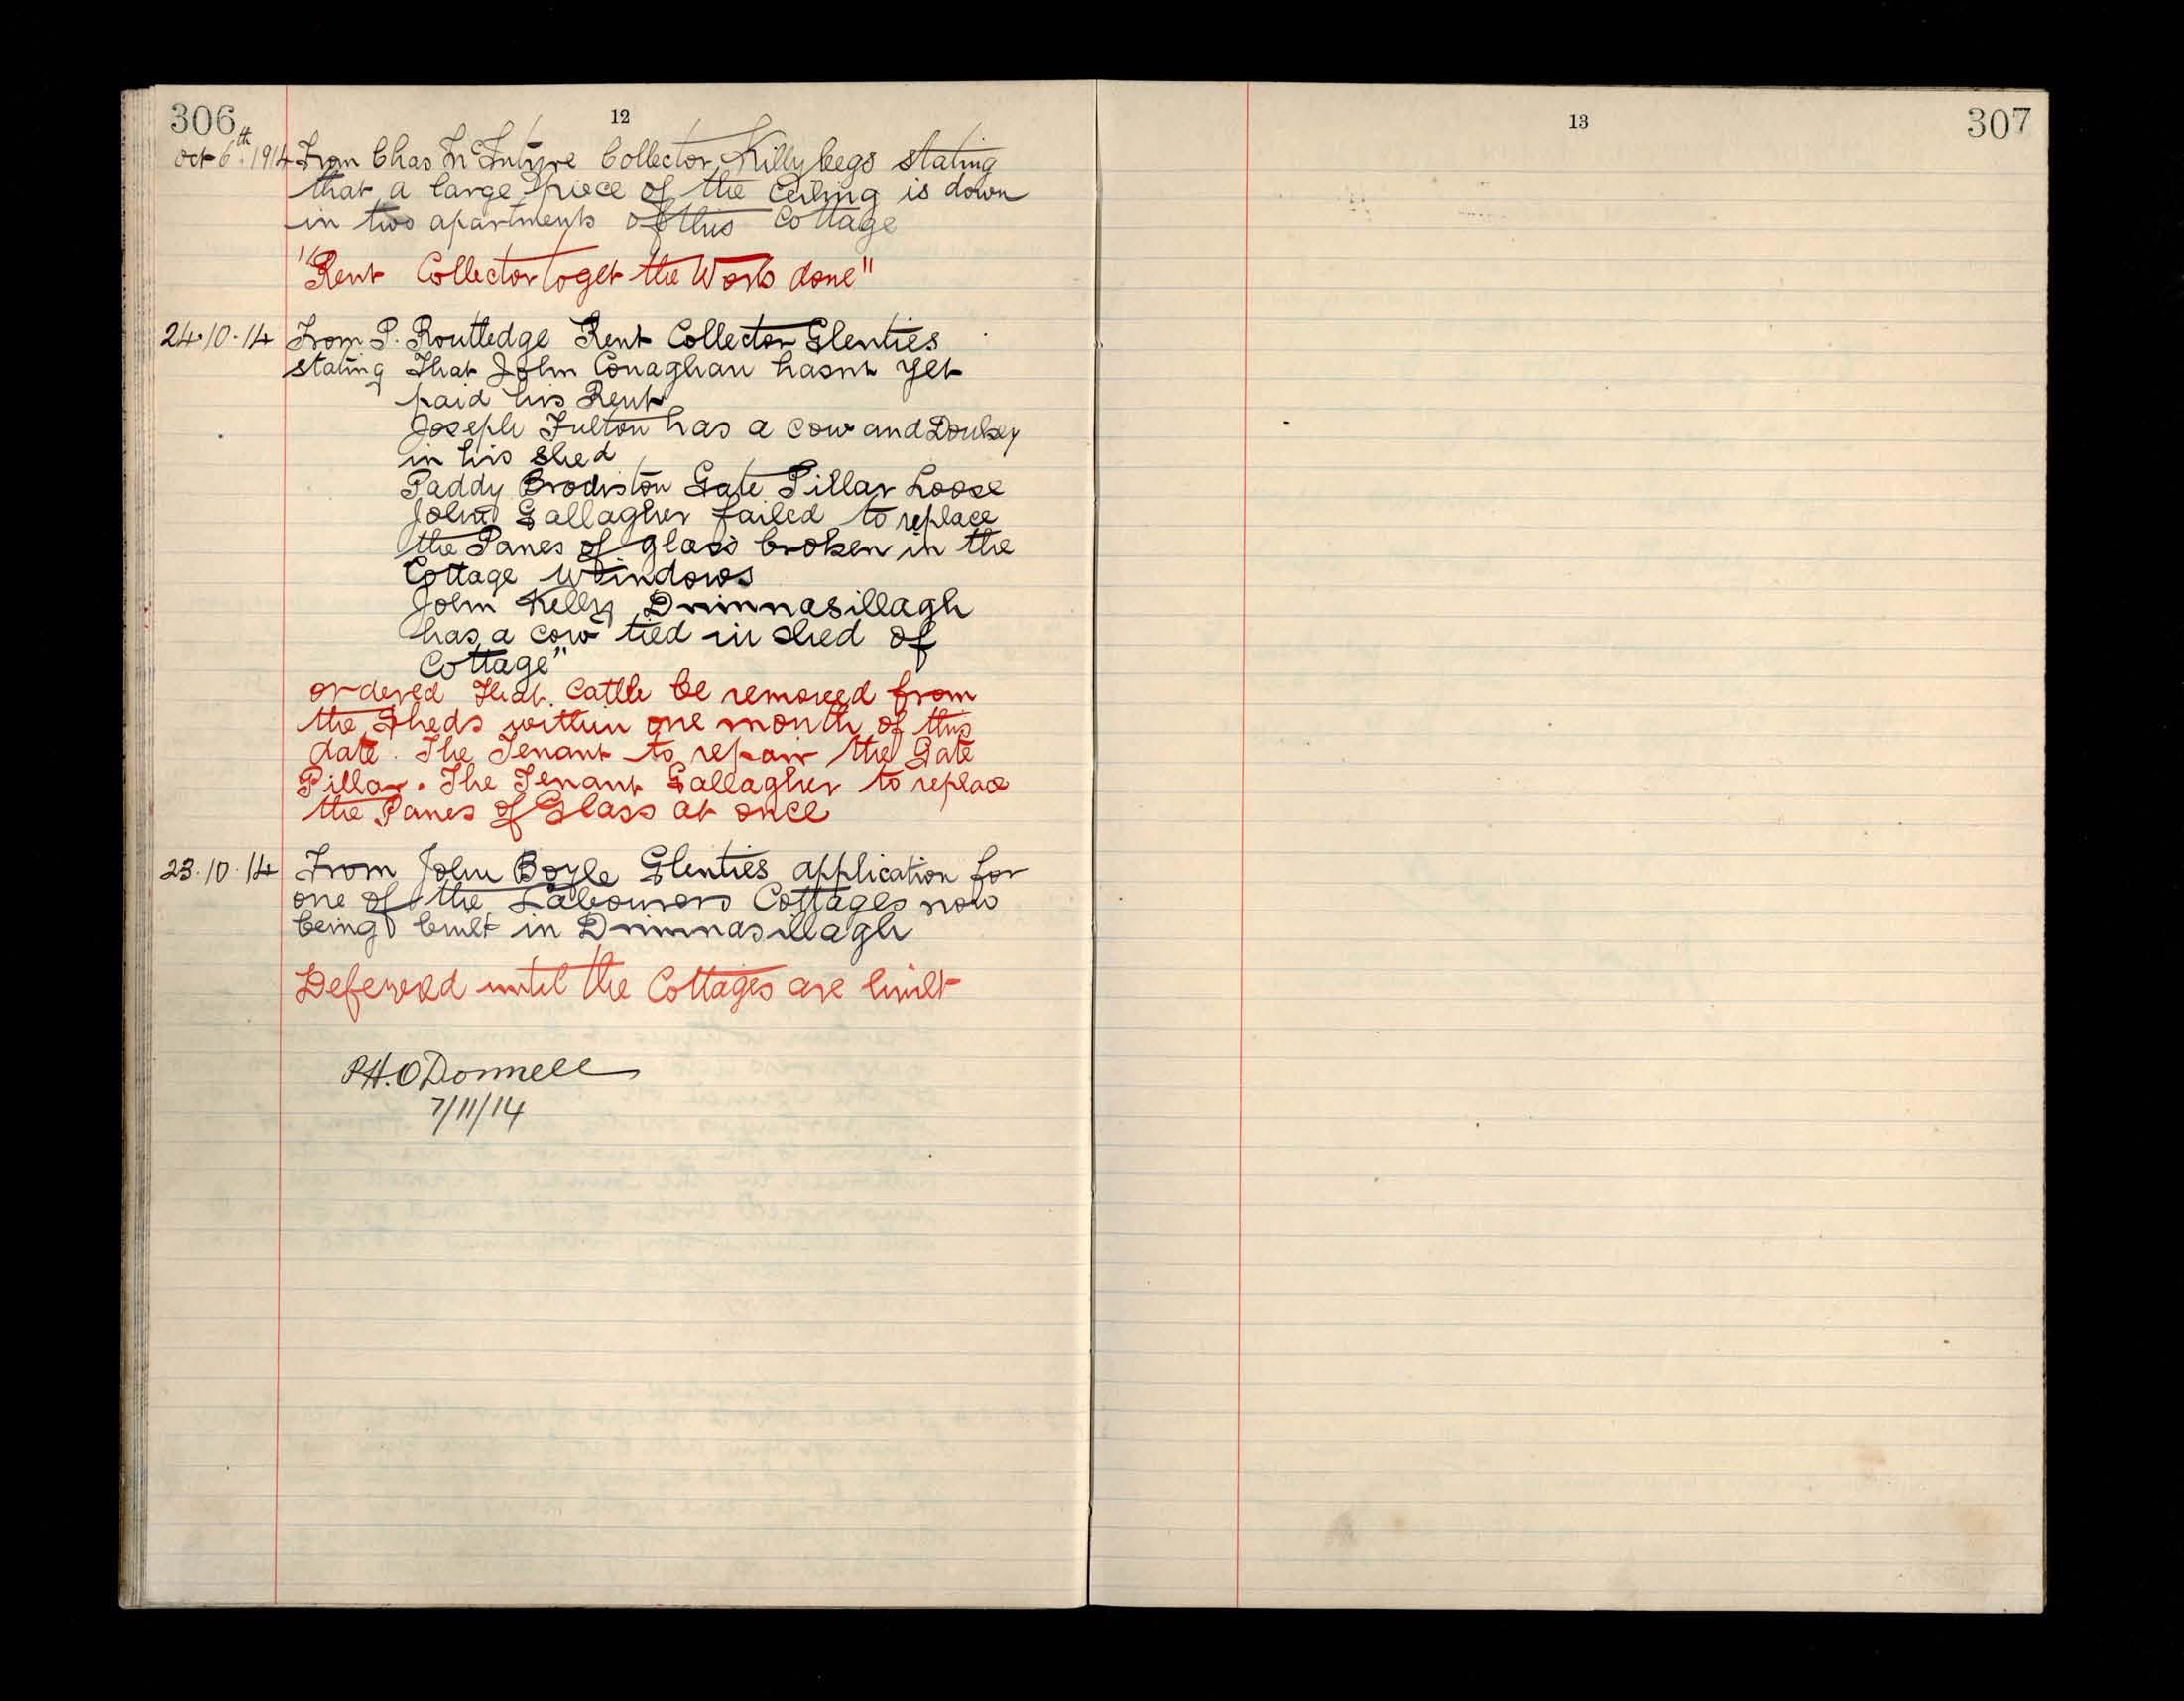 306
12
Oct 6th 1914 From Chas McIntyre Collector Killybegs stating
that a large piece of the Ceiling is down
in two apartments of this Cottage
"Rent Collector to get the Work done"
24.10.14 From P. Routledge Rent Collector Glenties
stating That John Conaghan hasnt yet
paid his Rent
Joseph Fulton has a cow and Donkey
in his shed
Paddy Brodiston Gate Pillar Loose
John Gallagher failed to replace
the Panes of glass broken in the
Cottage Windows
John Kelly Drimnasillagh
has a cow tied in shed of
Cottage"
ordered That Cattle be removed from
the Sheds within one month of this
date. The Tenant to repair the Gate
Pillar. The Tenant Gallagher to replace
the Panes of Glass at once
23.10.14 From John Boyle Glenties application for
one of the Labourers Cottages now
being built in Drimnasillagh
Defered until the Cottages are built
P.H. O'Donnell
7/11/14
13
307